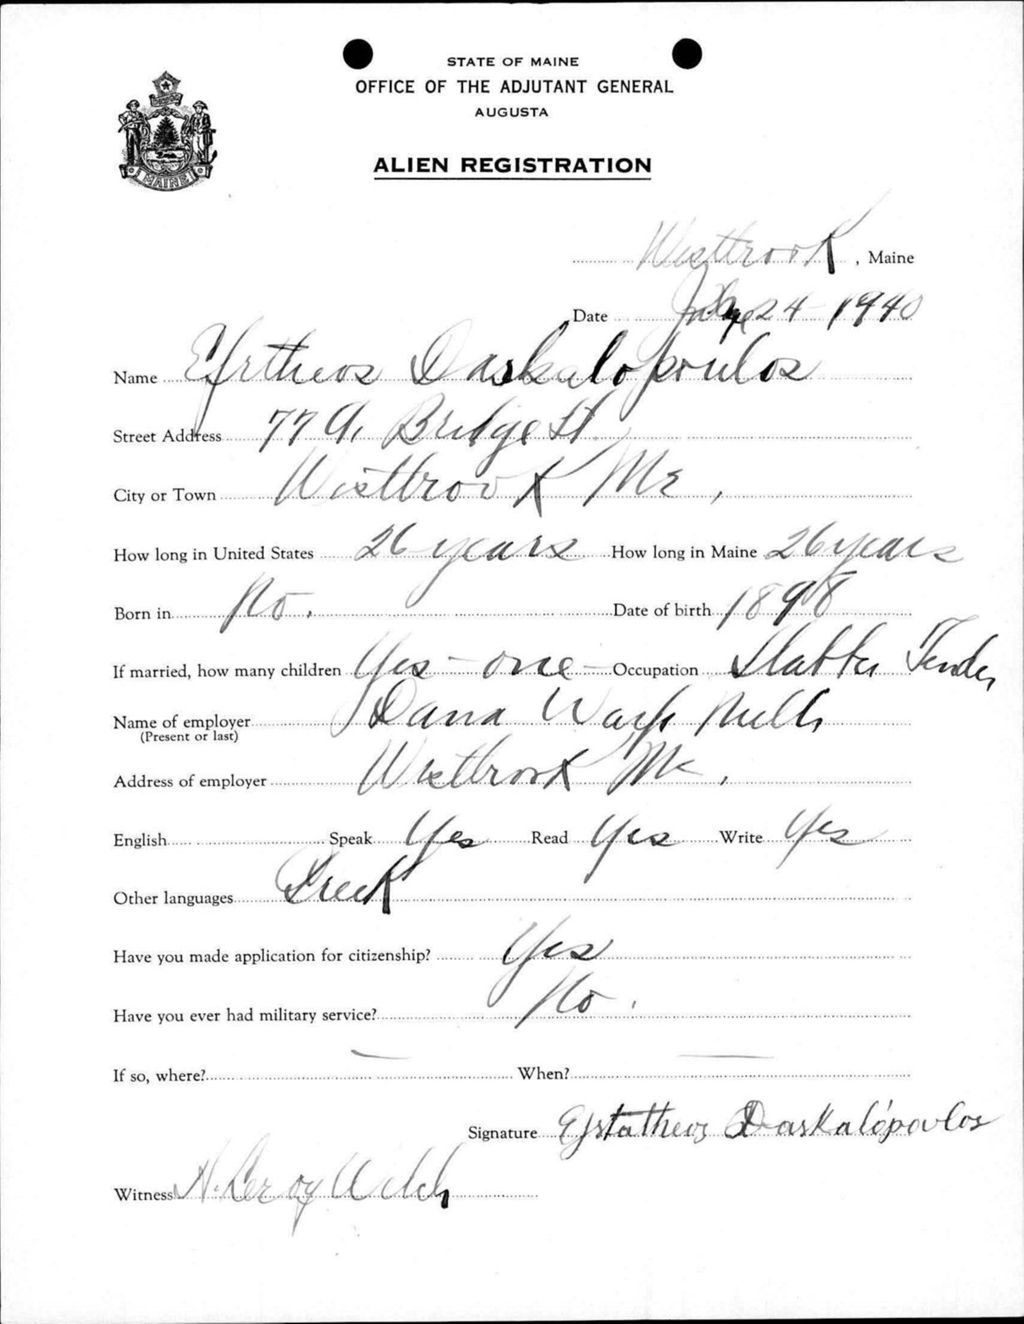 STATE OF MAINE
OFFICE OF THE ADJUTANT GENERAL
AUGUSTA
MAINE
ALIEN REGISTRATION
Westbrook, Maine
Date 24 - 1940
Name Efstheos Daskalopoulos
Street Address 77 Bridge St
City or Town Westbrook Me,
How long in United States 26 years How long in Maine 26 years
Born in No. Date of birth 1898
If married, how many children Yes - one - Occupation Tender
Name of employer Dana Warp Mills
(Present or last)
Address of employer Westbrook Me,
English Speak Yes Read Yes Write Yes
Other languages Greek
Have you made application for citizenship? Yes
Have you ever had military service? No.
If so, where? — When? —
Signature Efstatheos Daskalópoulos
Witness N. Leroy Welch